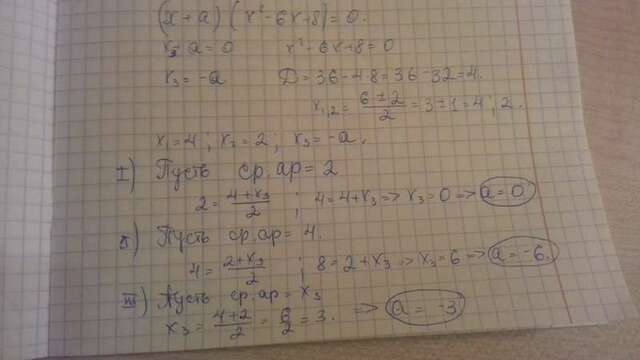 (x + a)(x² - 6x + 8) = 0.
x + a = 0    x² - 6x + 8 = 0
x₃ = -a    D = 36 - 48 = 36 - 32 = 4.
x₁,₂ = (6 ± 2)/2 = 3 ± 1 = 4; 2.
x₁ = 4; x₂ = 2; x₃ = -a.
I) Пусть ср. ар = 2
2 = (4 + x₃)/2; 4 = 4 + x₃ => x₃ = 0 => a = 0
II) Пусть ср. ар = 4.
4 = (2 + x₃)/2; 8 = 2 + x₃ => x₃ = 6 => a = -6.
III) Пусть ср. ар = x₃
x₃ = (4 + 2)/2 = 6/2 = 3. => a = -3